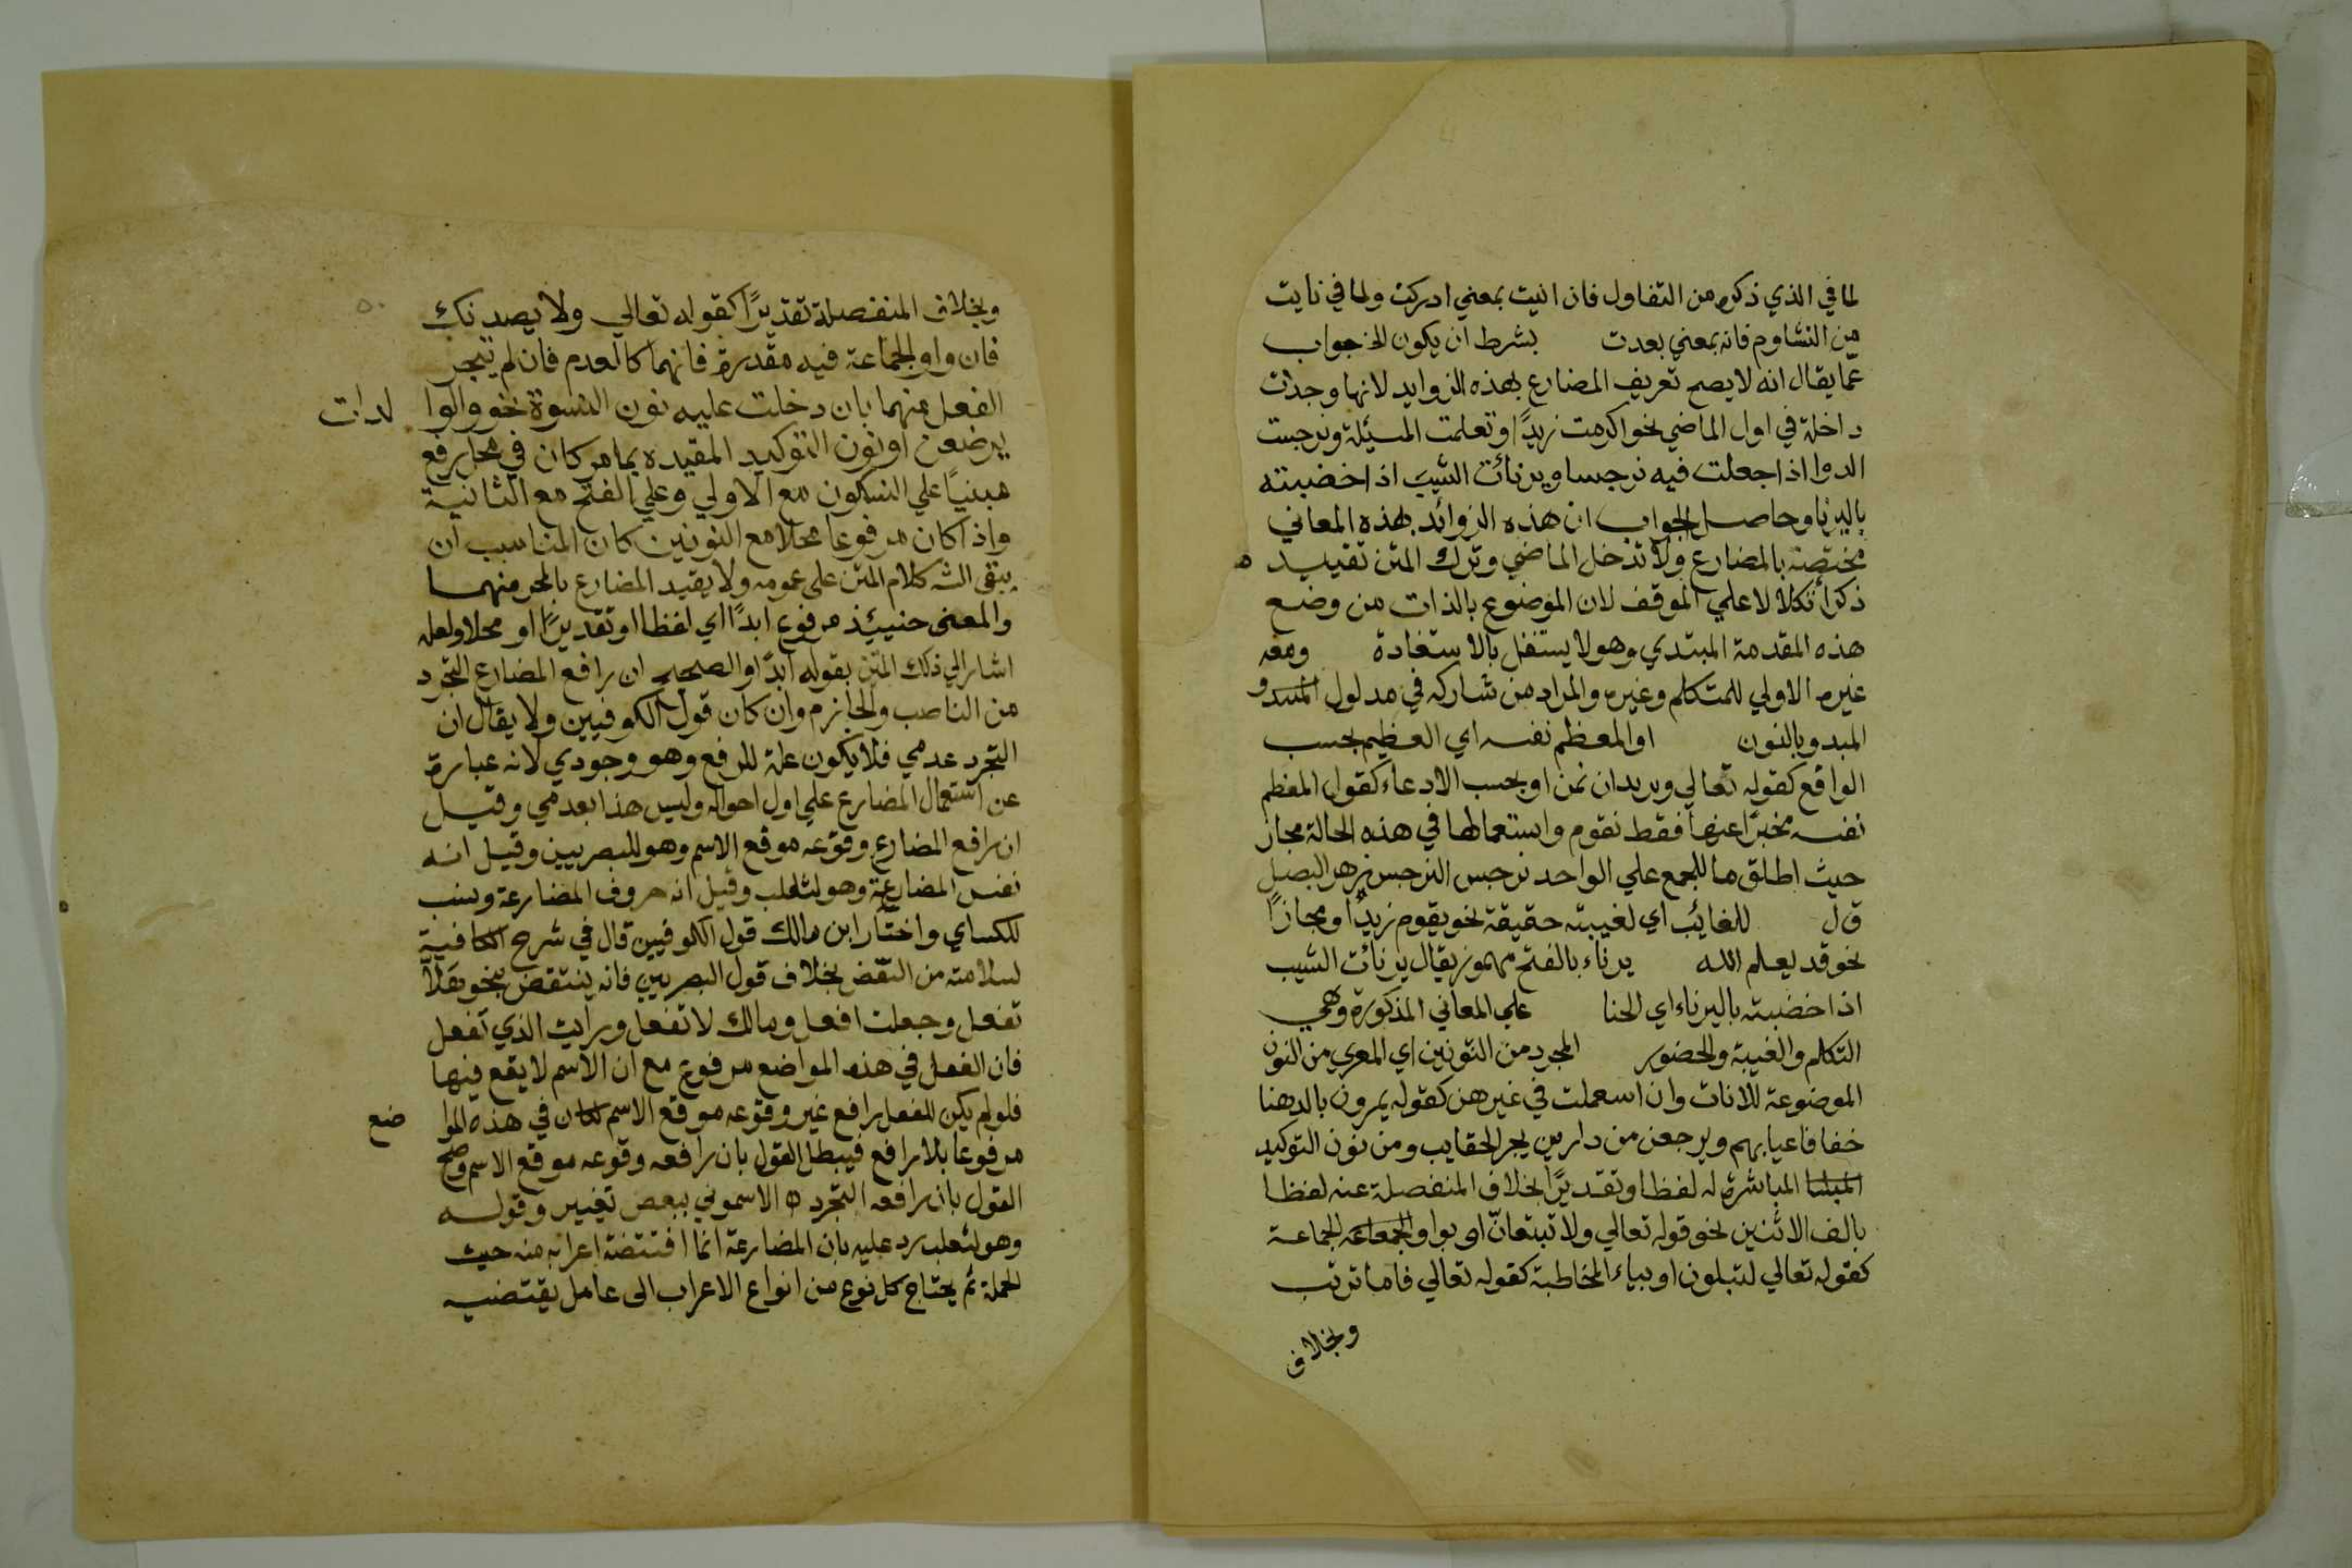 لما في الذي ذكره من التفاول فان انيت بمعني ادركت ولما في نايت
من التشاوم فانه بمعني بعدت بشرط ان يكون الخ جواب
عما يقال انه لا يصح تعريف المضارع بهذه الزوايد لانها وجدت
داخلة في اول الماضي نحو اكرمت زيدًا وتعلمت المسئلة ونرجست
الدوا اذا جعلت فيه نرجسا ويرنائت الشيب اذا خضبته
باليرنا وحاصل الجواب ان هذه الزوائد بهذه المعاني
مختصة بالمضارع ولا تدخل الماضي وترك المتن تقييد
ذكرا تكالا علي الموقف لان الموضوع بالذات من وضع
هذه المقدمة المبتدي وهو لا يستغل بالاستفادة ومعه
غيره الاولي للمتكلم وغيره والمراد من شاركه في مدلول
المبدو بالنون او المعظم نفسه اي العظيم بحسب
الواقع كقوله تعالي ويريد ان نمن او بحسب الادعاء كقول المعظم
نفسه مخبرًا عنها فقط نقوم واستعمالها في هذه الحالة مجاز
حيث اطلق ما للجمع علي الواحد نرجس النرجس زهر البصل
ق ل للغائب اي لغيبته حقيقة نحو يقوم زيدٌ او مجازًا
نحو قد يعلم الله يرناء بالفتح مهموز يقال يرنائت الشيب
اذا خضبته باليرناء اي الحنا علي المعاني المذكورة وهي
التكلم والغيبة والحضور المجرد من النونين اي المعري من النون
الموضوعة للاناث وان اسعملت في غيرهن كقوله يمرون بالدهنا
خفافا عيابهم ويرجعن من دارين بجر الحقايب ومن نون التوكيد
المباشرة له لفظا وتقديرًا بخلاف المنفصلة عنه لفظا
بالف الاثنين نحو قوله تعالي ولا تبتعانّ او بواو الجماعة
كقوله تعالي لتبلون او بياء المخاطبة كقوله تعالي فاما ترتب
وبخلاف
وبخلاف المنفصلة تقديرًا كقوله تعالي ولا يصدنك
فان واو الجماعة فيه مقدرة فانهما كالعدم فان لم يتجر
الفعل منهما بان دخلت عليه نون النسوة نحو والوا لدات
يرضعن او نون التوكيد المقيده بما مر كان في محل رفع
مبنيًا علي السكون مع الاولي وعلي الفتح مع الثانية
واذا كان مرفوعا محلا مع النونين كان المناسب ان
يبقي الشـ كلام المتن علي عمومه ولا يقيد المضارع بالمجر منهما
والمعني حنيئذ مرفوع ابدًا اي لفظا او تقديرًا او محلا ولعله
اشار الي ذلك المتن بقوله ابدًا والصحيح ان رافع المضارع التجرد
من الناصب والجازم وان كان قول الكوفيين ولا يقال ان
التجرد عدمي فلا يكون علة للرفع وهو وجودي لانه عبارة
عن استعمال المضارع علي اول احواله وليس هذا بعدمي وقيل
ان رافع المضارع وقوعه موقع الاسم وهو للبصريين وقيل انه
نفس المضارعة وهو لثعلب وقيل انه حروف المضارعة ونسب
للكساي واختار ابن مالك قول الكوفيين قال في شرح الكافية
لسلامته من النقض بخلاف قول البصريين فانه ينتقض بنحو هلّا
تفعل وجعلت افعل ومالك لا تفعل ورايت الذي تفعل
فان الفعل في هذه المواضع مرفوع مع ان الاسم لا يقع فيها
فلو لم يكن للفعل رافع غير وقوعه موقع الاسم لكان في هذه الموا ضع
مرفوعا بلا رافع فيبطل القول بان رافعه وقوعه موقع الاسم وصح
القول بان رافعه التجرد ه الاسموني ببعض تغيير وقوله
وهو لثعلب رد عليه بان المضارعة انما افتتضة اعرابه منه حيث
الجملة ثم يحتاج كل نوع من انواع الاعراب الى عامل يقتضيه